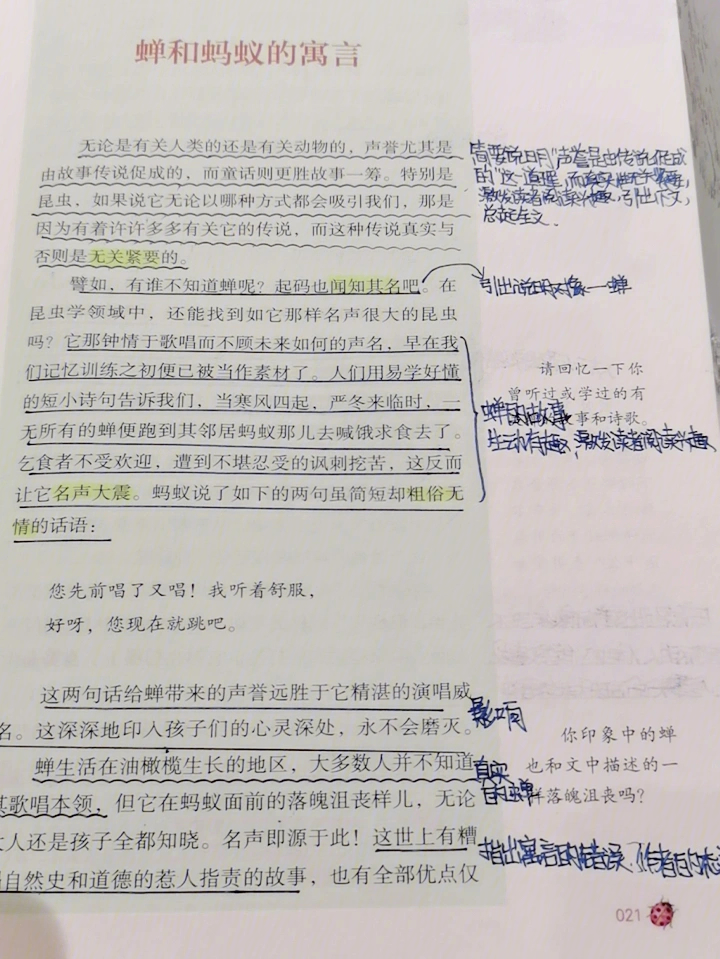 蝉和蚂蚁的寓言
无论是有关人类的还是有关动物的，声誉尤其是
由故事传说促成的，而童话则更胜故事一筹。特别是
昆虫，如果说它无论以哪种方式都会吸引我们，那是
因为有着许许多多有关它的传说，而这种传说真实与
否则是无关紧要的。
譬如，有谁不知道蝉呢？起码也闻知其名吧。在
昆虫学领域中，还能找到如它那样名声很大的昆虫
吗？它那钟情于歌唱而不顾未来如何的声名，早在我
们记忆训练之初便已被当作素材了。人们用易学好懂
的短小诗句告诉我们，当寒风四起，严冬来临时，一
无所有的蝉便跑到其邻居蚂蚁那儿去喊饿求食去了。
乞食者不受欢迎，遭到不堪忍受的讽刺挖苦，这反而
让它名声大震。蚂蚁说了如下的两句虽简短却粗俗无
情的话语：
您先前唱了又唱！我听着舒服，
好呀，您现在就跳吧。
这两句话给蝉带来的声誉远胜于它精湛的演唱威
名。这深深地印入孩子们的心灵深处，永不会磨灭。
蝉生活在油橄榄生长的地区，大多数人并不知道
其歌唱本领，但它在蚂蚁面前的落魄沮丧样儿，无论
大人还是孩子全都知晓。名声即源于此！这世上有糟
自然史和道德的惹人指责的故事，也有全部优点仅
简要说明"声誉是由传说促成
的"这一道理，而真实性无关紧要，
激发读者阅读兴趣，引出下文，
总起全文.
引出说明对象——蝉
请回忆一下你
曾听过或学过的有
事和诗歌。
蝉的故事
生动有趣，激发读者阅读兴趣
影响
你印象中的蝉
也和文中描述的一
样落魄沮丧吗？
真实
的蝉
指出寓言的错误，作者的态
021